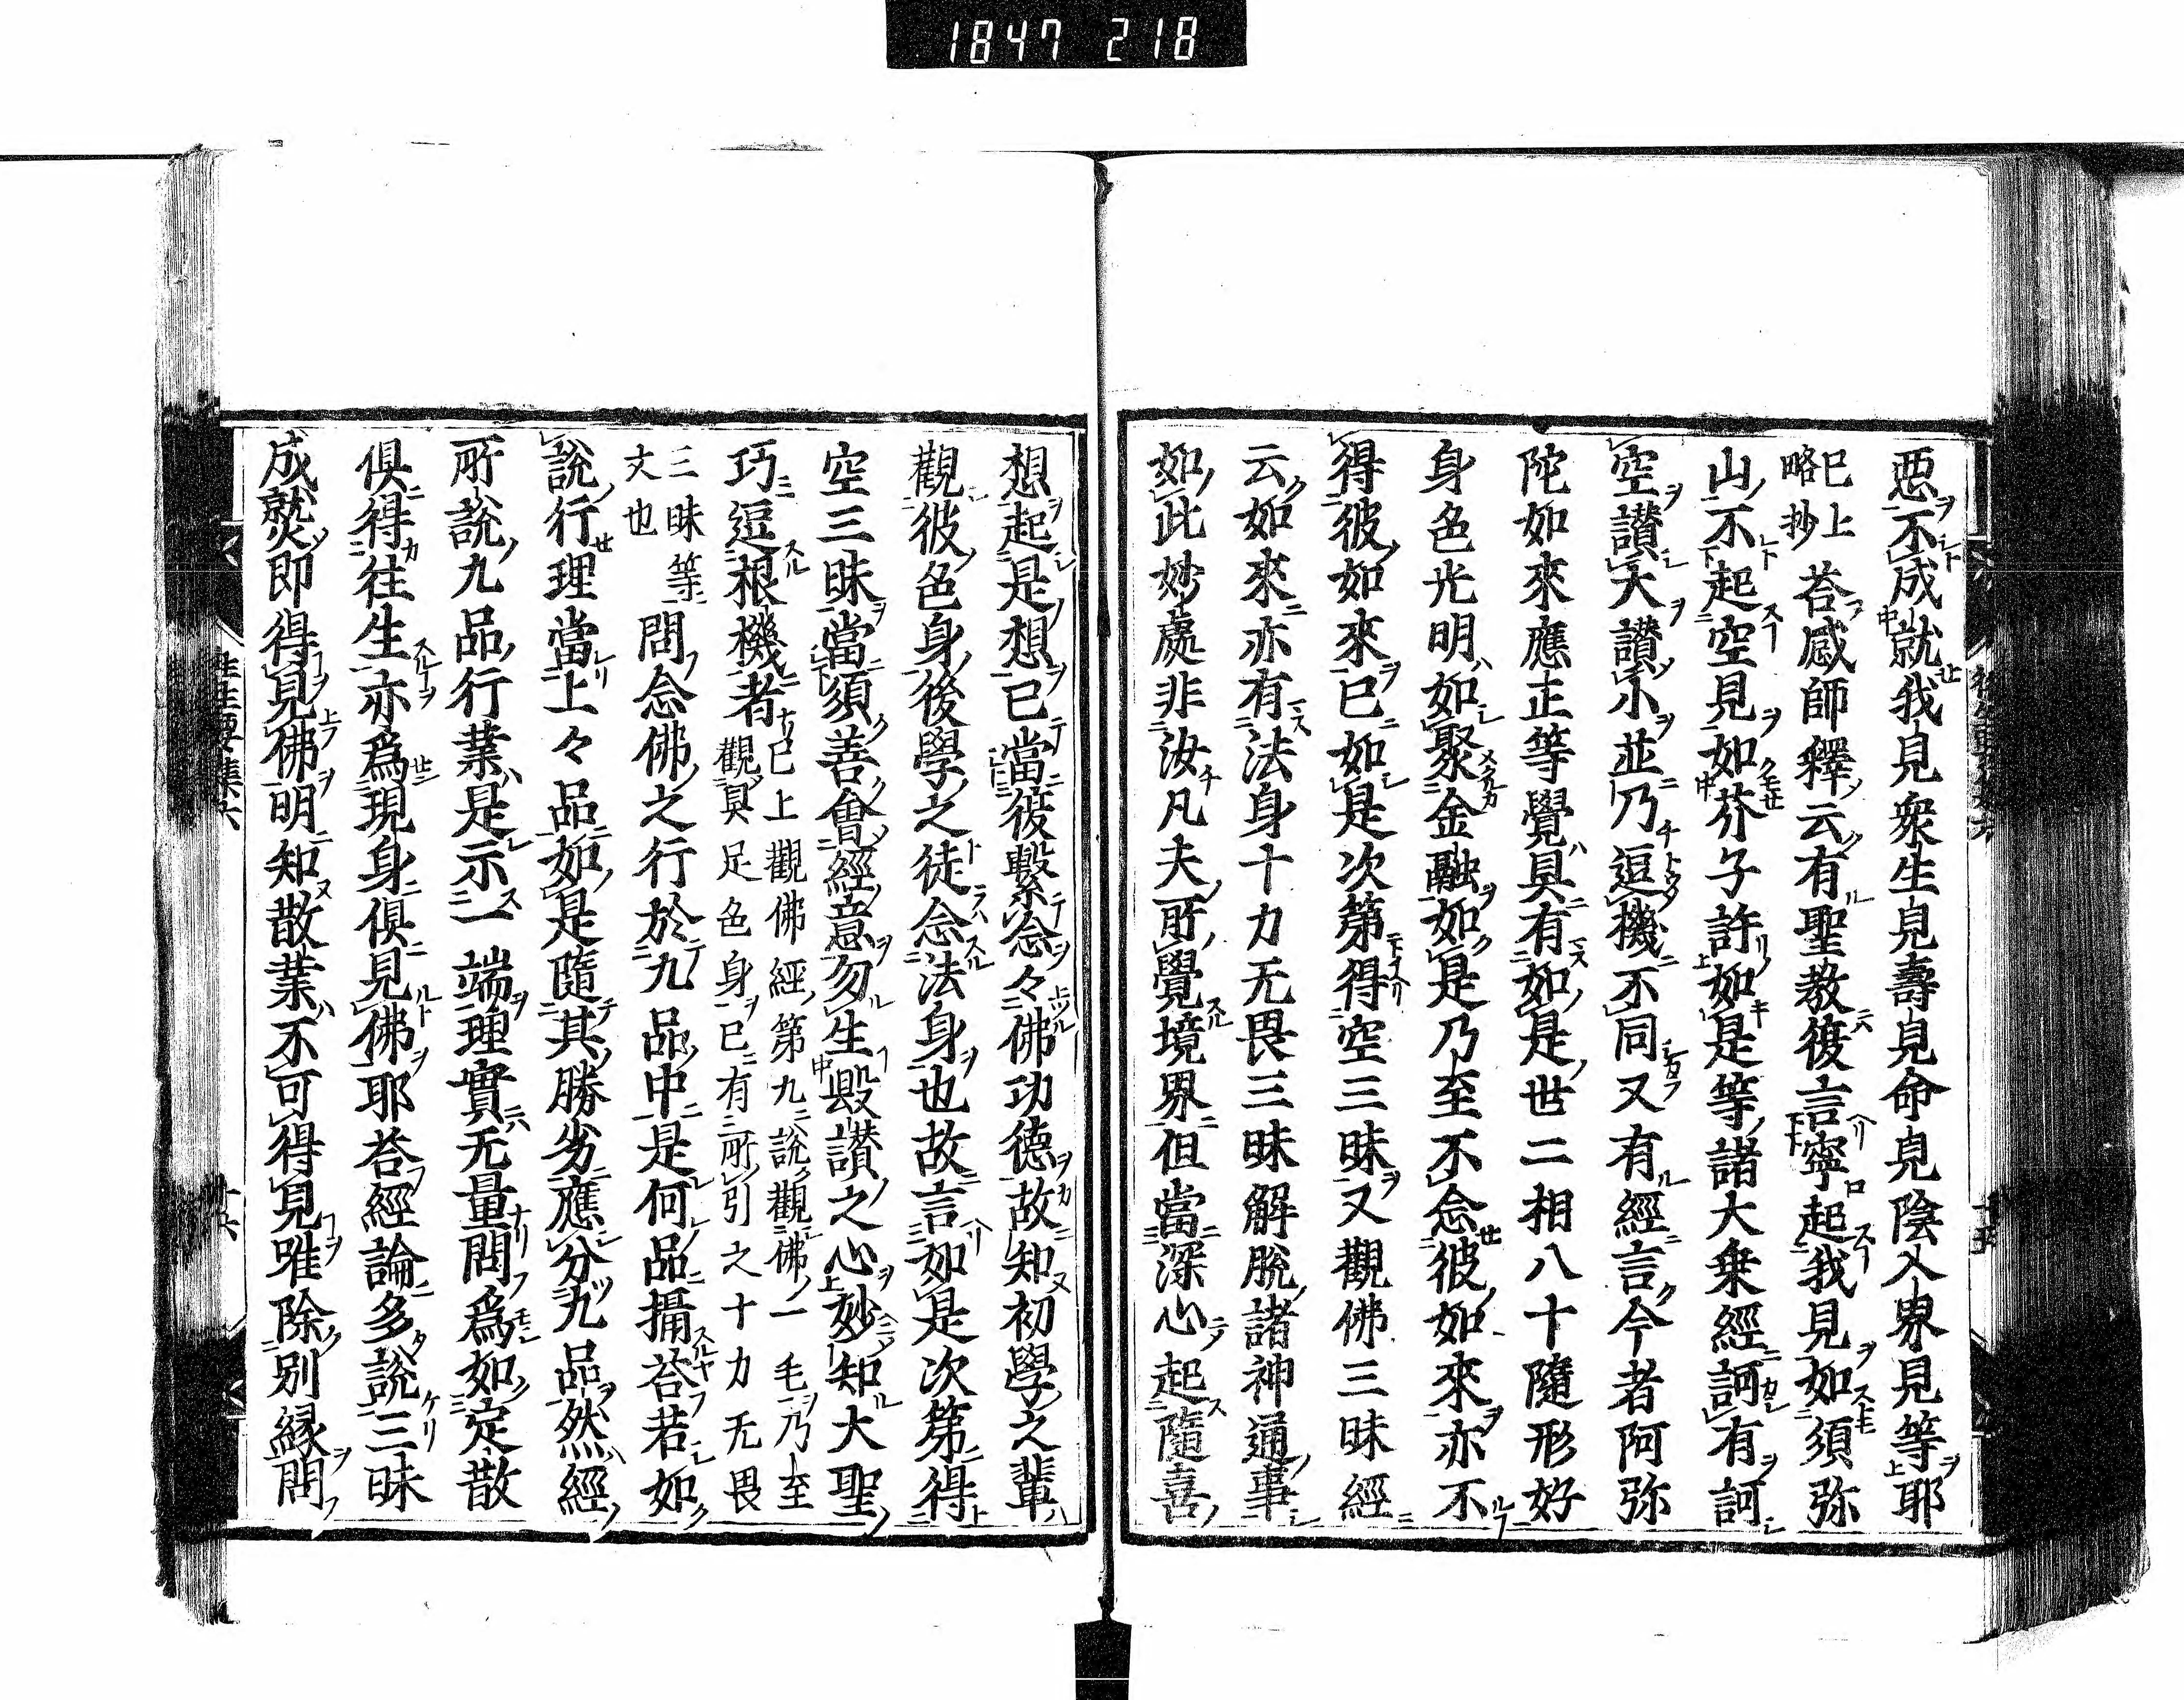 1847 218
惡不成就我見衆生見壽見命見陰入界見等耶
已上略抄 荅感師釋云有聖教復言寧起我見如須弥
山不起空見如芥子許如是等諸大乗經訶有訶
空讃大讃小並乃逗機不同又有經言今者阿弥
陀如來應正等覺具有如是世二相八十隨形好
身色光明如聚金融如是乃至不念彼如來亦不
得彼如來已如是次第得空三昧又觀佛三昧經
云如來亦有法身十力无畏三昧解脫諸神通事
如此妙處非汝凡夫所覺境界但當深心起隨喜
想起是想已當彼繫念々佛功德故知初學之輩
觀彼色身後學之徒念法身也故言如是次第得
空三昧當須善會經意勿生毀讃之心妙知大聖
巧逗根機者 已上觀佛經第九說觀佛一毛乃至觀具足色身已有所引之十力无畏
三昧等文也 問念佛之行於九品中是何品攝荅若如
說行理當上々品如是隨其勝劣應分九品然經
所說九品行業是示一端理實无量問爲如定散
俱得往生亦爲現身俱見佛耶荅經論多說三昧
成就即得見佛明知散業不可得見唯除別縁問
往生要集六